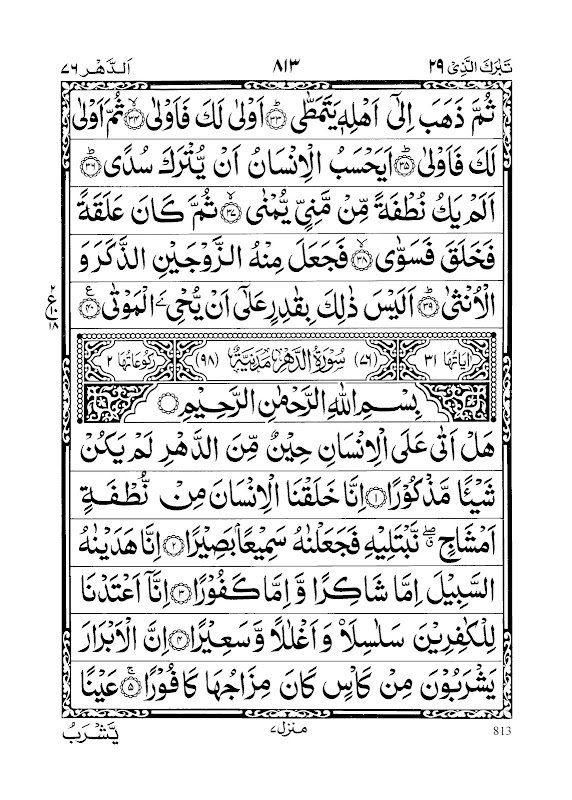 تَبٰرَكَ الَّذِىْ ٢٩ ٨١٣ اَلدَّهْر ٧٦
ثُمَّ ذَهَبَ اِلٰٓى اَهْلِهٖ يَتَمَطّٰى ؕ‏﴿۳۳﴾ اَوْلٰى لَكَ فَاَوْلٰى ۙ‏﴿۳۴﴾ ثُمَّ اَوْلٰى
لَكَ فَاَوْلٰى ؕ‏﴿۳۵﴾ اَيَحْسَبُ الْاِنْسَانُ اَنْ يُّتْرَكَ سُدًى ؕ‏﴿۳۶﴾
اَلَمْ يَكُ نُطْفَةً مِّنْ مَّنِىٍّ يُّمْنٰى ۙ‏﴿۳۷﴾ ثُمَّ كَانَ عَلَقَةً
فَخَلَقَ فَسَوّٰى ۙ‏﴿۳۸﴾ فَجَعَلَ مِنْهُ الزَّوْجَيْنِ الذَّكَرَ وَ
الْاُنْثٰى ؕ‏﴿۳۹﴾ اَلَيْسَ ذٰلِكَ بِقٰدِرٍ عَلٰٓى اَنْ يُّحْیِۦَ الْمَوْتٰى ‏﴿۴۰﴾
٢ ع ١٠ ١٨
اٰيَاتُهَا ٣١ (٧٦) سُوْرَةُ الدَّهْرِ مَدَنِيَّةٌ (٩٨) رُكُوْعَاتُهَا ٢
بِسْمِ اللهِ الرَّحْمٰنِ الرَّحِيْمِ
هَلْ اَتٰى عَلَى الْاِنْسَانِ حِيْنٌ مِّنَ الدَّهْرِ لَمْ يَكُنْ
شَيْـًٔا مَّذْكُوْرًا ‏﴿۱﴾ اِنَّا خَلَقْنَا الْاِنْسَانَ مِنْ نُّطْفَةٍ
اَمْشَاجٍ ۖۗ نَّبْتَلِيْهِ فَجَعَلْنٰهُ سَمِيْعًۢا بَصِيْرًا ‏﴿۲﴾ اِنَّا هَدَيْنٰهُ
السَّبِيْلَ اِمَّا شَاكِرًا وَّ اِمَّا كَفُوْرًا ‏﴿۳﴾ اِنَّاۤ اَعْتَدْنَا
لِلْكٰفِرِيْنَ سَلٰسِلَا۟ وَ اَغْلٰلًا وَّ سَعِيْرًا ‏﴿۴﴾ اِنَّ الْاَبْرَارَ
يَشْرَبُوْنَ مِنْ كَاْسٍ كَانَ مِزَاجُهَا كَافُوْرًا ۚ‏﴿۵﴾ عَيْنًا
813 منزل ٧ يَّشْرَبُ